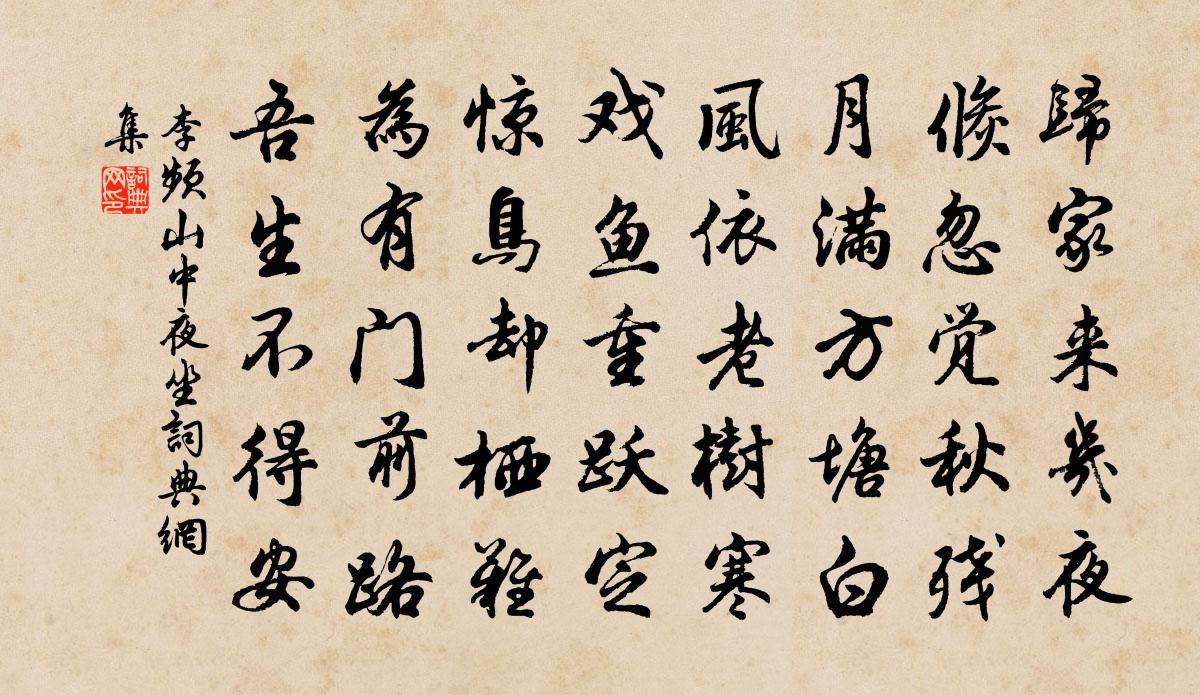 歸家来幾夜
倏忽觉秋残
月满方塘白
風依老樹寒
戏鱼重跃定
惊鳥却栖難
為有门前路
吾生不得安
李频山中夜坐詞典網
集
詞典
网印